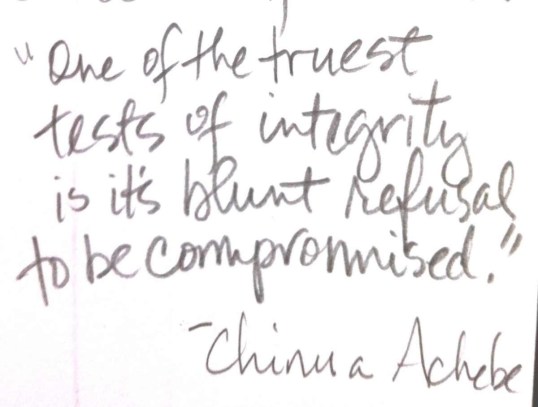 "One of the truest
tests of integrity
is it's blunt refusal
to be compromised."
-Chinua Achebe